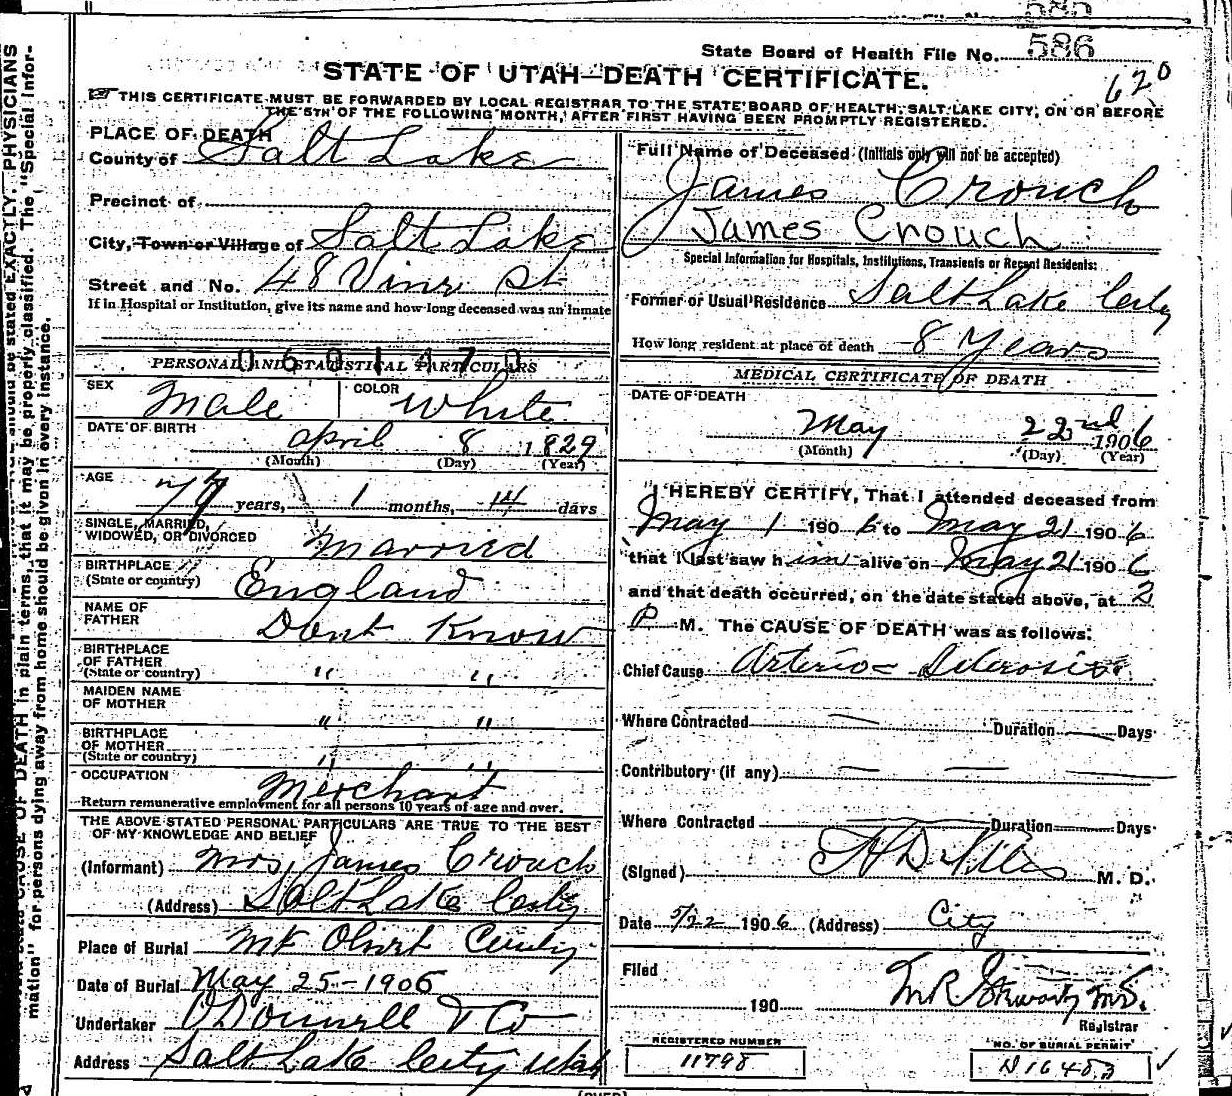 585
State Board of Health File No. 586
STATE OF UTAH—DEATH CERTIFICATE.
620
THIS CERTIFICATE MUST BE FORWARDED BY LOCAL REGISTRAR TO THE STATE BOARD OF HEALTH, SALT LAKE CITY, ON OR BEFORE
THE 5TH OF THE FOLLOWING MONTH, AFTER FIRST HAVING BEEN PROMPTLY REGISTERED.
PLACE OF DEATH
County of Salt Lake
Precinct of
City, Town or Village of Salt Lake
Street and No. 48 Vine St
If in Hospital or Institution, give its name and how long deceased was an inmate
0601470
PERSONAL AND STATISTICAL PARTICULARS
SEX Male COLOR White
DATE OF BIRTH April 8 1829
(Month) (Day) (Year)
AGE 77 years, 1 months, 14 days
SINGLE, MARRIED,
WIDOWED, OR DIVORCED Married
BIRTHPLACE
(State or country) England
NAME OF
FATHER Dont Know
BIRTHPLACE
OF FATHER
(State or country) " "
MAIDEN NAME
OF MOTHER " "
BIRTHPLACE
OF MOTHER
(State or country) " "
OCCUPATION Merchant
Return remunerative employment for all persons 10 years of age and over.
THE ABOVE STATED PERSONAL PARTICULARS ARE TRUE TO THE BEST
OF MY KNOWLEDGE AND BELIEF
(Informant) Mrs, James Crouch
(Address) Salt Lake City
Place of Burial Mt Olivet
Date of Burial May 25-1906
Undertaker O'Donnell & Co
Address Salt Lake City Utah
Full Name of Deceased (Initials only will not be accepted)
James Crouch
James Crouch
Special Information for Hospitals, Institutions, Transients or Recent Residents:
Former or Usual Residence Salt Lake City
How long resident at place of death 8 Years
MEDICAL CERTIFICATE OF DEATH
DATE OF DEATH
May 22nd 1906
(Month) (Day) (Year)
I HEREBY CERTIFY, That I attended deceased from
May 1 1906 to May 21 1906
that I last saw him alive on May 21 1906
and that death occurred, on the date stated above, at 2
P. M. The CAUSE OF DEATH was as follows:
Chief Cause Arterio = Sclerosis
Where Contracted Duration Days
Contributory (if any)
Where Contracted Duration Days
(Signed) M. D.
Date 5/22 1906 (Address) City
Filed
190
Registrar
REGISTERED NUMBER
11798
NO. OF BURIAL PERMIT
(OVER)
CAUSE OF DEATH in plain terms, that it may be properly classified. The "Special Infor-
mation" for persons dying away from home should be given in every instance.
should be stated EXACTLY. PHYSICIANS